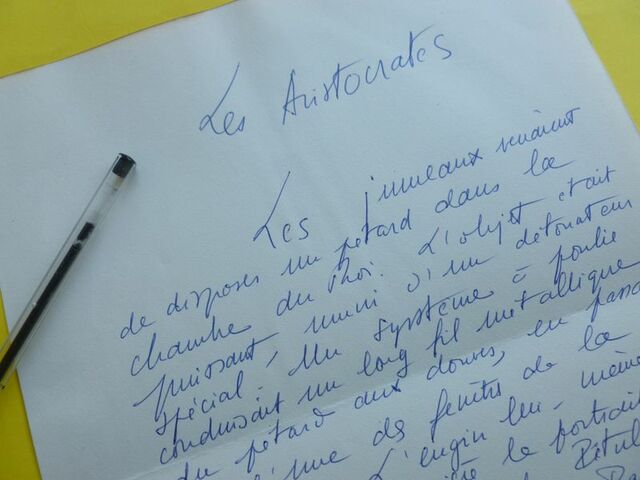 Les Aristocrates
Les jumeaux venaient
de disposer un pétard dans la
chambre du Roi. L'objet était
puissant, muni d'un détonateur
spécial. Un système à poulie
conduisait un long fil métallique
du pétard aux douves, en passa
l'une des fenêtres de la
L'engin lui-même
le portrait